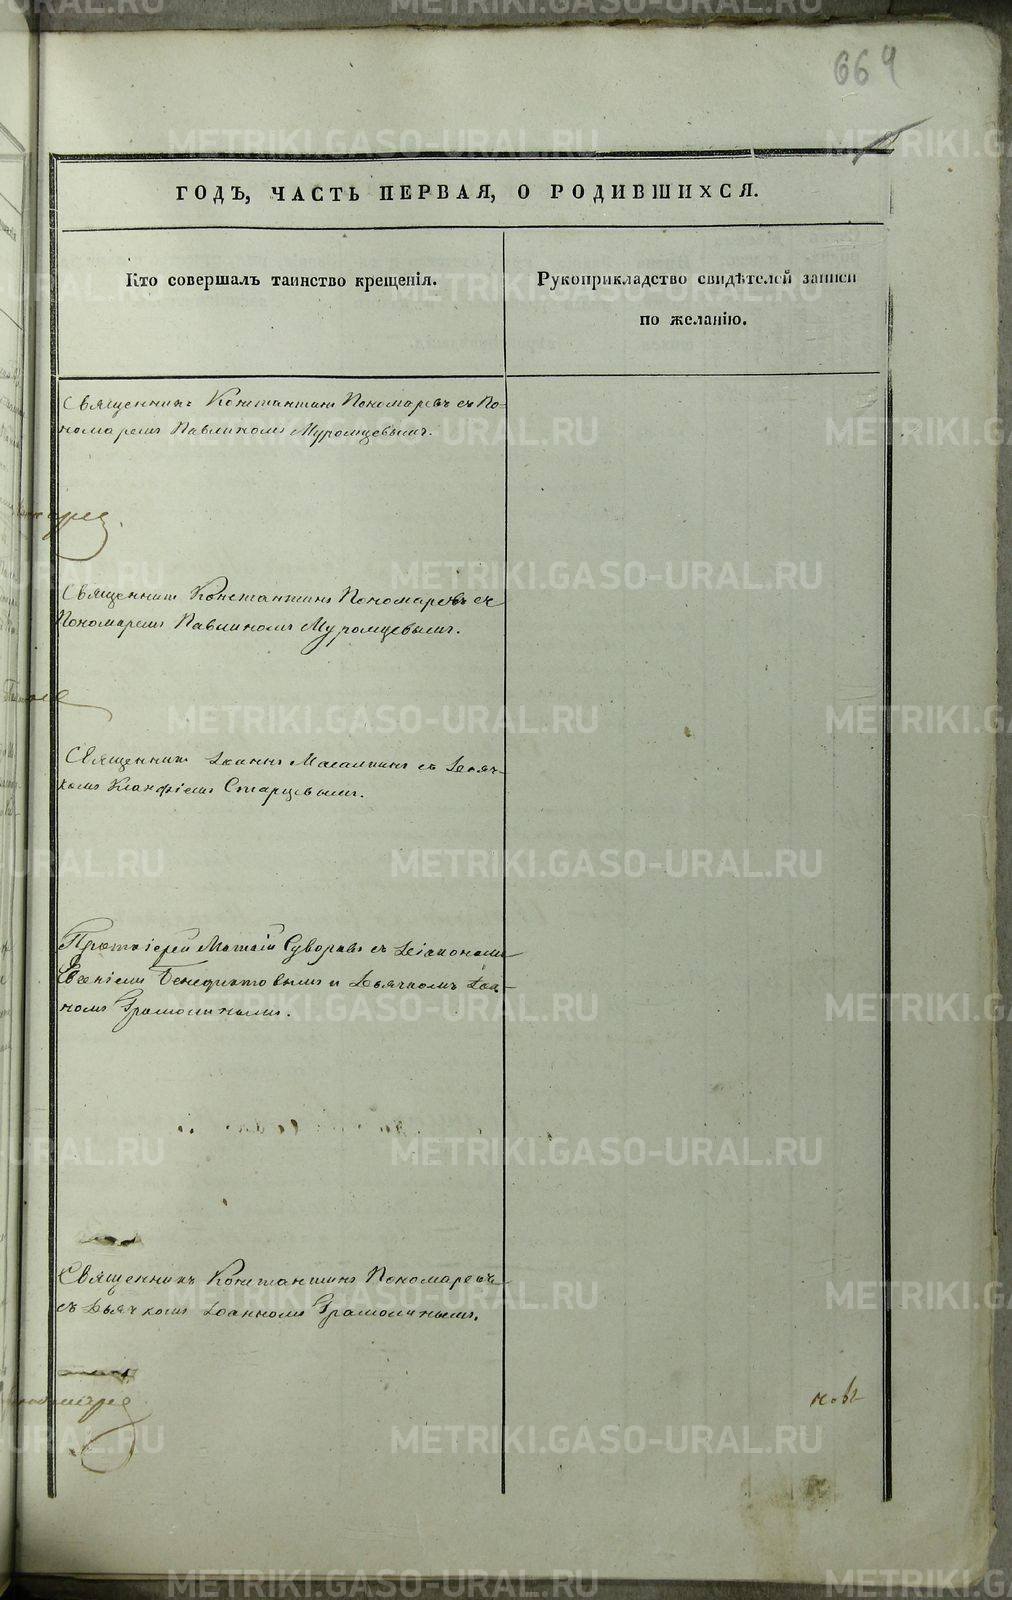 664
ГОДЪ, ЧАСТЬ ПЕРВАЯ, О РОДИВШИХСЯ.
Кто совершалъ таинство крещенія.
Рукоприкладство свидѣтелей записи
по желанію.
Священникъ Константинъ Пономаревъ съ По-
номаремъ Павлиномъ Муромцевымъ.
Священникъ Константинъ Пономаревъ съ
Пономаремъ Павлиномъ Муромцевымъ.
Священникъ Іоаннъ съ Дьяч-
комъ Старцевымъ.
Протоіерей Суворовъ съ Діакономъ
Евгеніемъ Бенедиктовымъ и Дьячкомъ Іоан-
номъ Грамолинымъ.
Священникъ Константинъ Пономаревъ
съ Дьячкомъ Іоанномъ Грамолинымъ.
METRIKI.GASO-URAL.RU